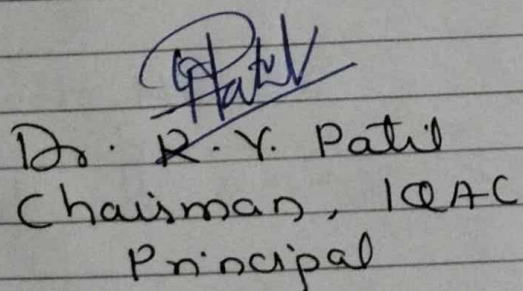 Patil
Dr. R. Y. Patil
Chairman, IQAC
Principal